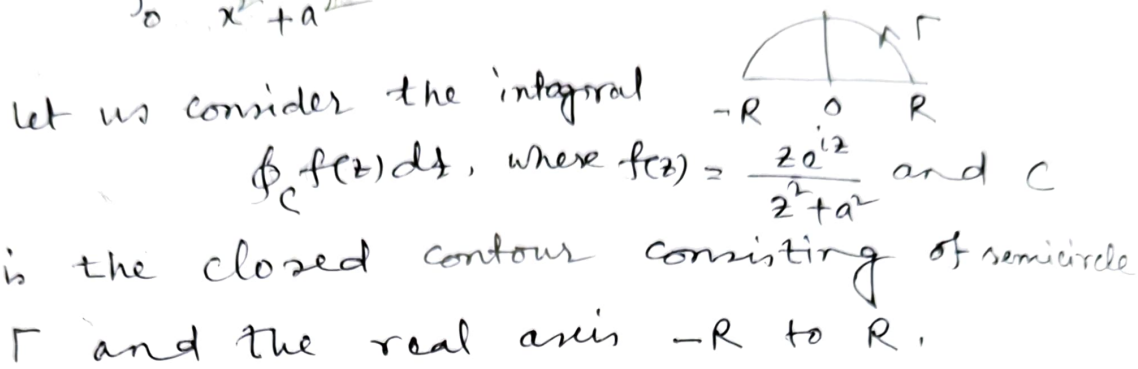 0 x² + a²
Γ
-R 0 R
let us consider the integral
∮_C f(z) dz, where f(z) = ze^{iz} / z² + a² and C
is the closed contour consisting of semicircle
Γ and the real axis -R to R.